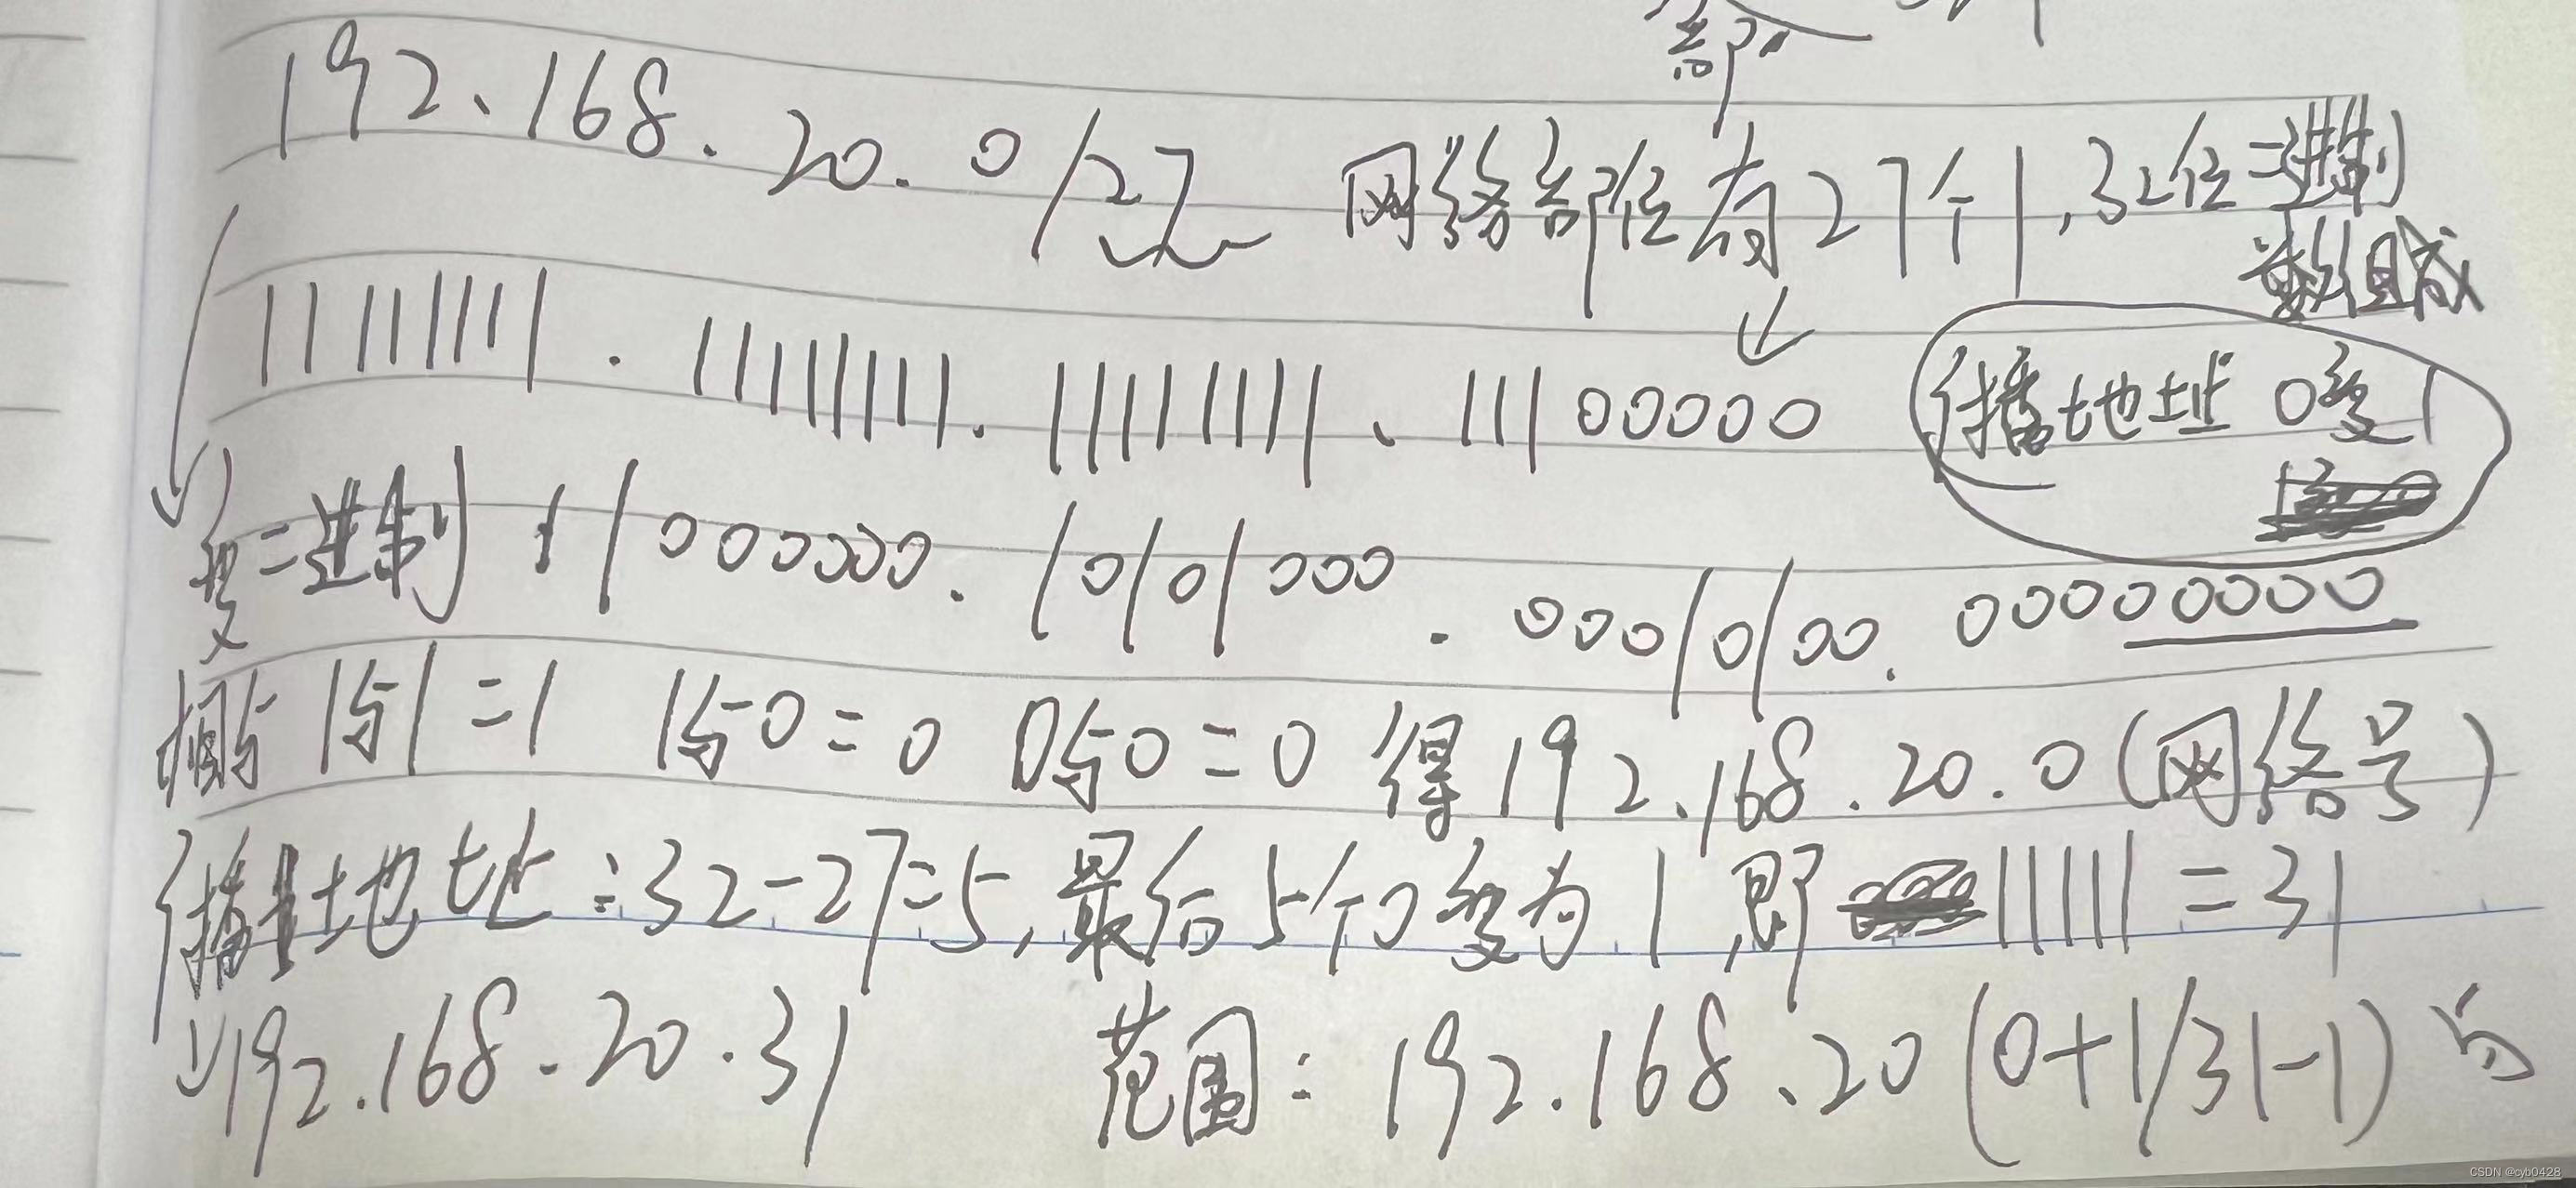 部
192.168.20.0/27 网络部位有27个1,32位二进制
数组成
11111111.11111111.11111111.11100000 传播地址 0变1
变二进制 11000000.10101000.00010100.00000000
相与 1与1=1 1与0=0 0与0=0 得192.168.20.0(网络号)
传播地址:32-27=5,最后5个0变为1 即 11111=31
192.168.20.31 范围:192.168.20(0+1/31-1)
CSDN @cyb0428